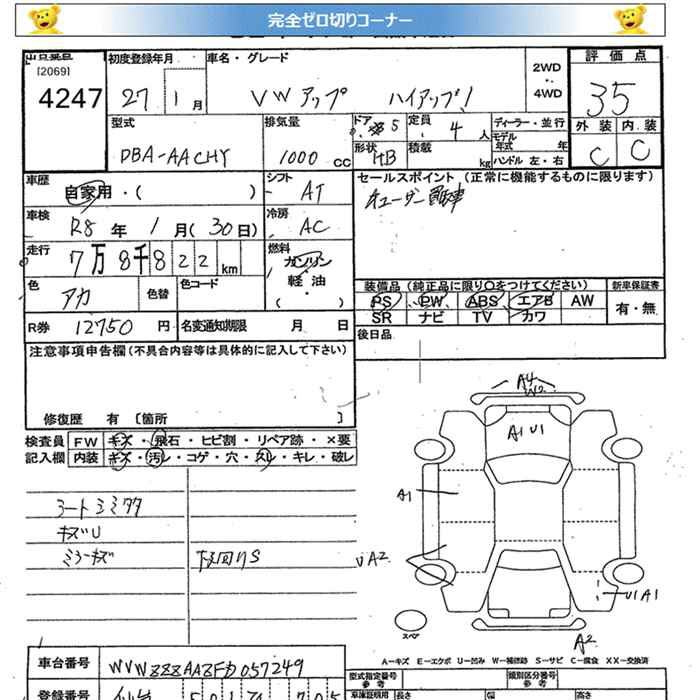 完全ゼロ切りコーナー
出品番号 初度登録年月 車名・グレード 評価点
[2069] 2WD
4247 27 1 月 VWアップ ハイアップ! ・ 4WD 35
型式 排気量 ドア 5 定員 4 人 ディーラー・並行 外装 内装
DBA-AACHY 1000 cc 形状 HB 積載 kg モデル年式 年 C C
ハンドル 左・右
車歴 自家用・( ) シフト AT セールスポイント (正常に機能するものに限ります)
車検 R8 年 1 月(30日) 冷房 AC
走行 7万8千822km 燃料 ガソリン
軽・油
( )
色 アカ 色替 色コード 装備品(純正品に限り○をつけてください) 新車保証書
PS PW ABS エアB AW 有・無
SR ナビ TV カワ
R券 12750 円 名変通知期限 月 日 後日品
注意事項申告欄(不具合内容等は具体的に記入して下さい)
修復歴 有 [箇所 ]
検査員 FW キズ・飛石・ヒビ割・リペア跡・×要
記入欄 内装 キズ・汚レ・コゲ・穴・スレ・キレ・破レ
キズU
ミラーキズ 下回りS
A4
W2
A1 U1
A1
UA2
U1A1
A2
スペア
A―キズ E―エクボ U―凹み W―補修跡 S―サビ C―腐食 XX―交換済
車台番号 型式指定番号 類別区分番号
参考 参考
登録番号 仙台 501 車庫証明用 長さ 幅 高さ